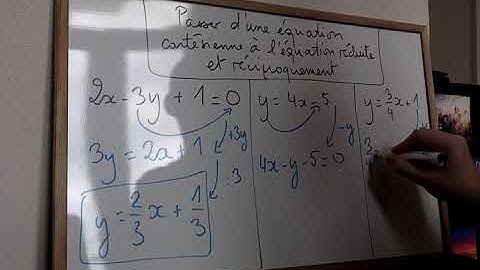 Passer d'une équation
cartésienne à l'équation réduite
et réciproquement
2x - 3y + 1 = 0
+3y
3y = 2x + 1
: 3
y = 2/3 x + 1/3
y = 4x - 5
-y
4x - y - 5 = 0
y = 3/4 x + 1
3